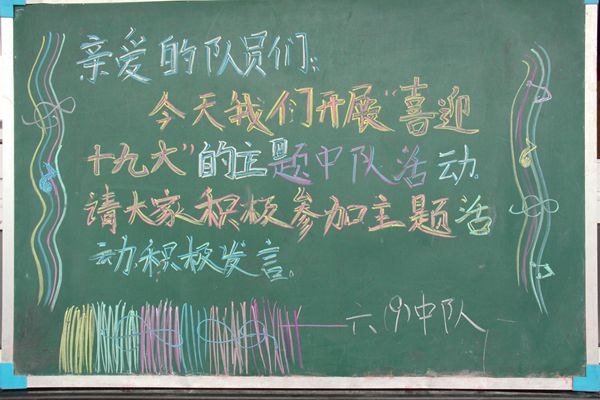 亲爱的队员们:
今天我们开展“喜迎
十九大”的主题中队活动.
请大家积极参加主题活
动,积极发言。
六(9)中队